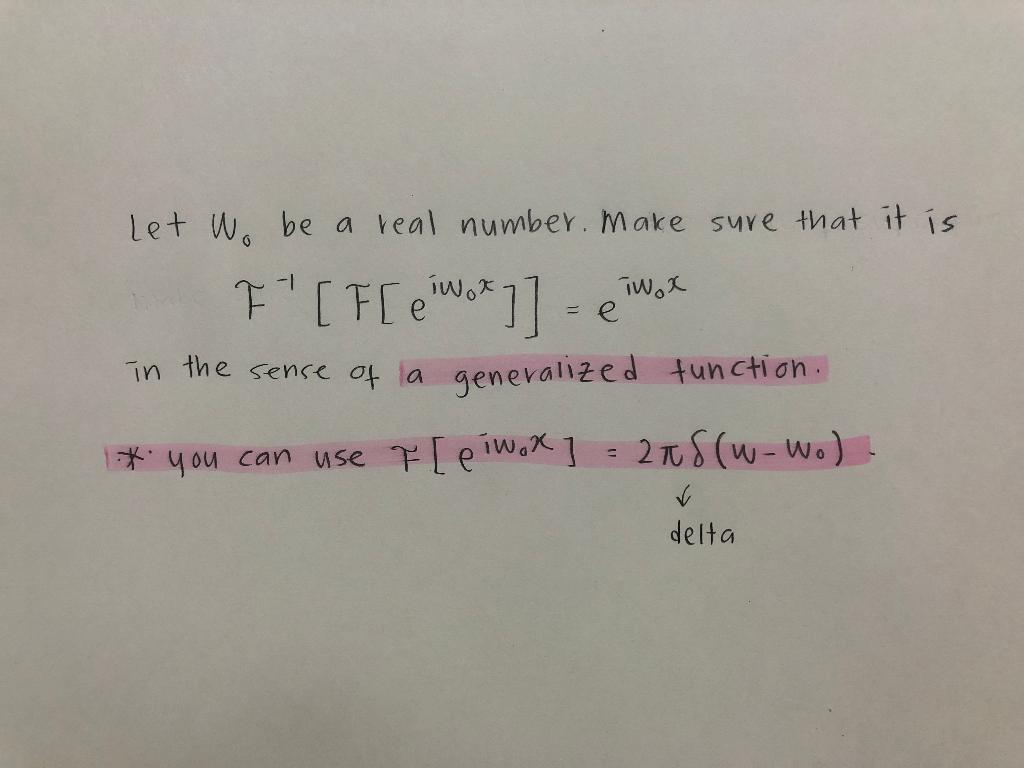 Let W₀ be a real number. Make sure that it is
F⁻¹[F[e^{iW₀x}]] = e^{iW₀x}
in the sense of a generalized function.
* you can use F[e^{iW₀x}] = 2πδ(w - w₀).
↓
delta